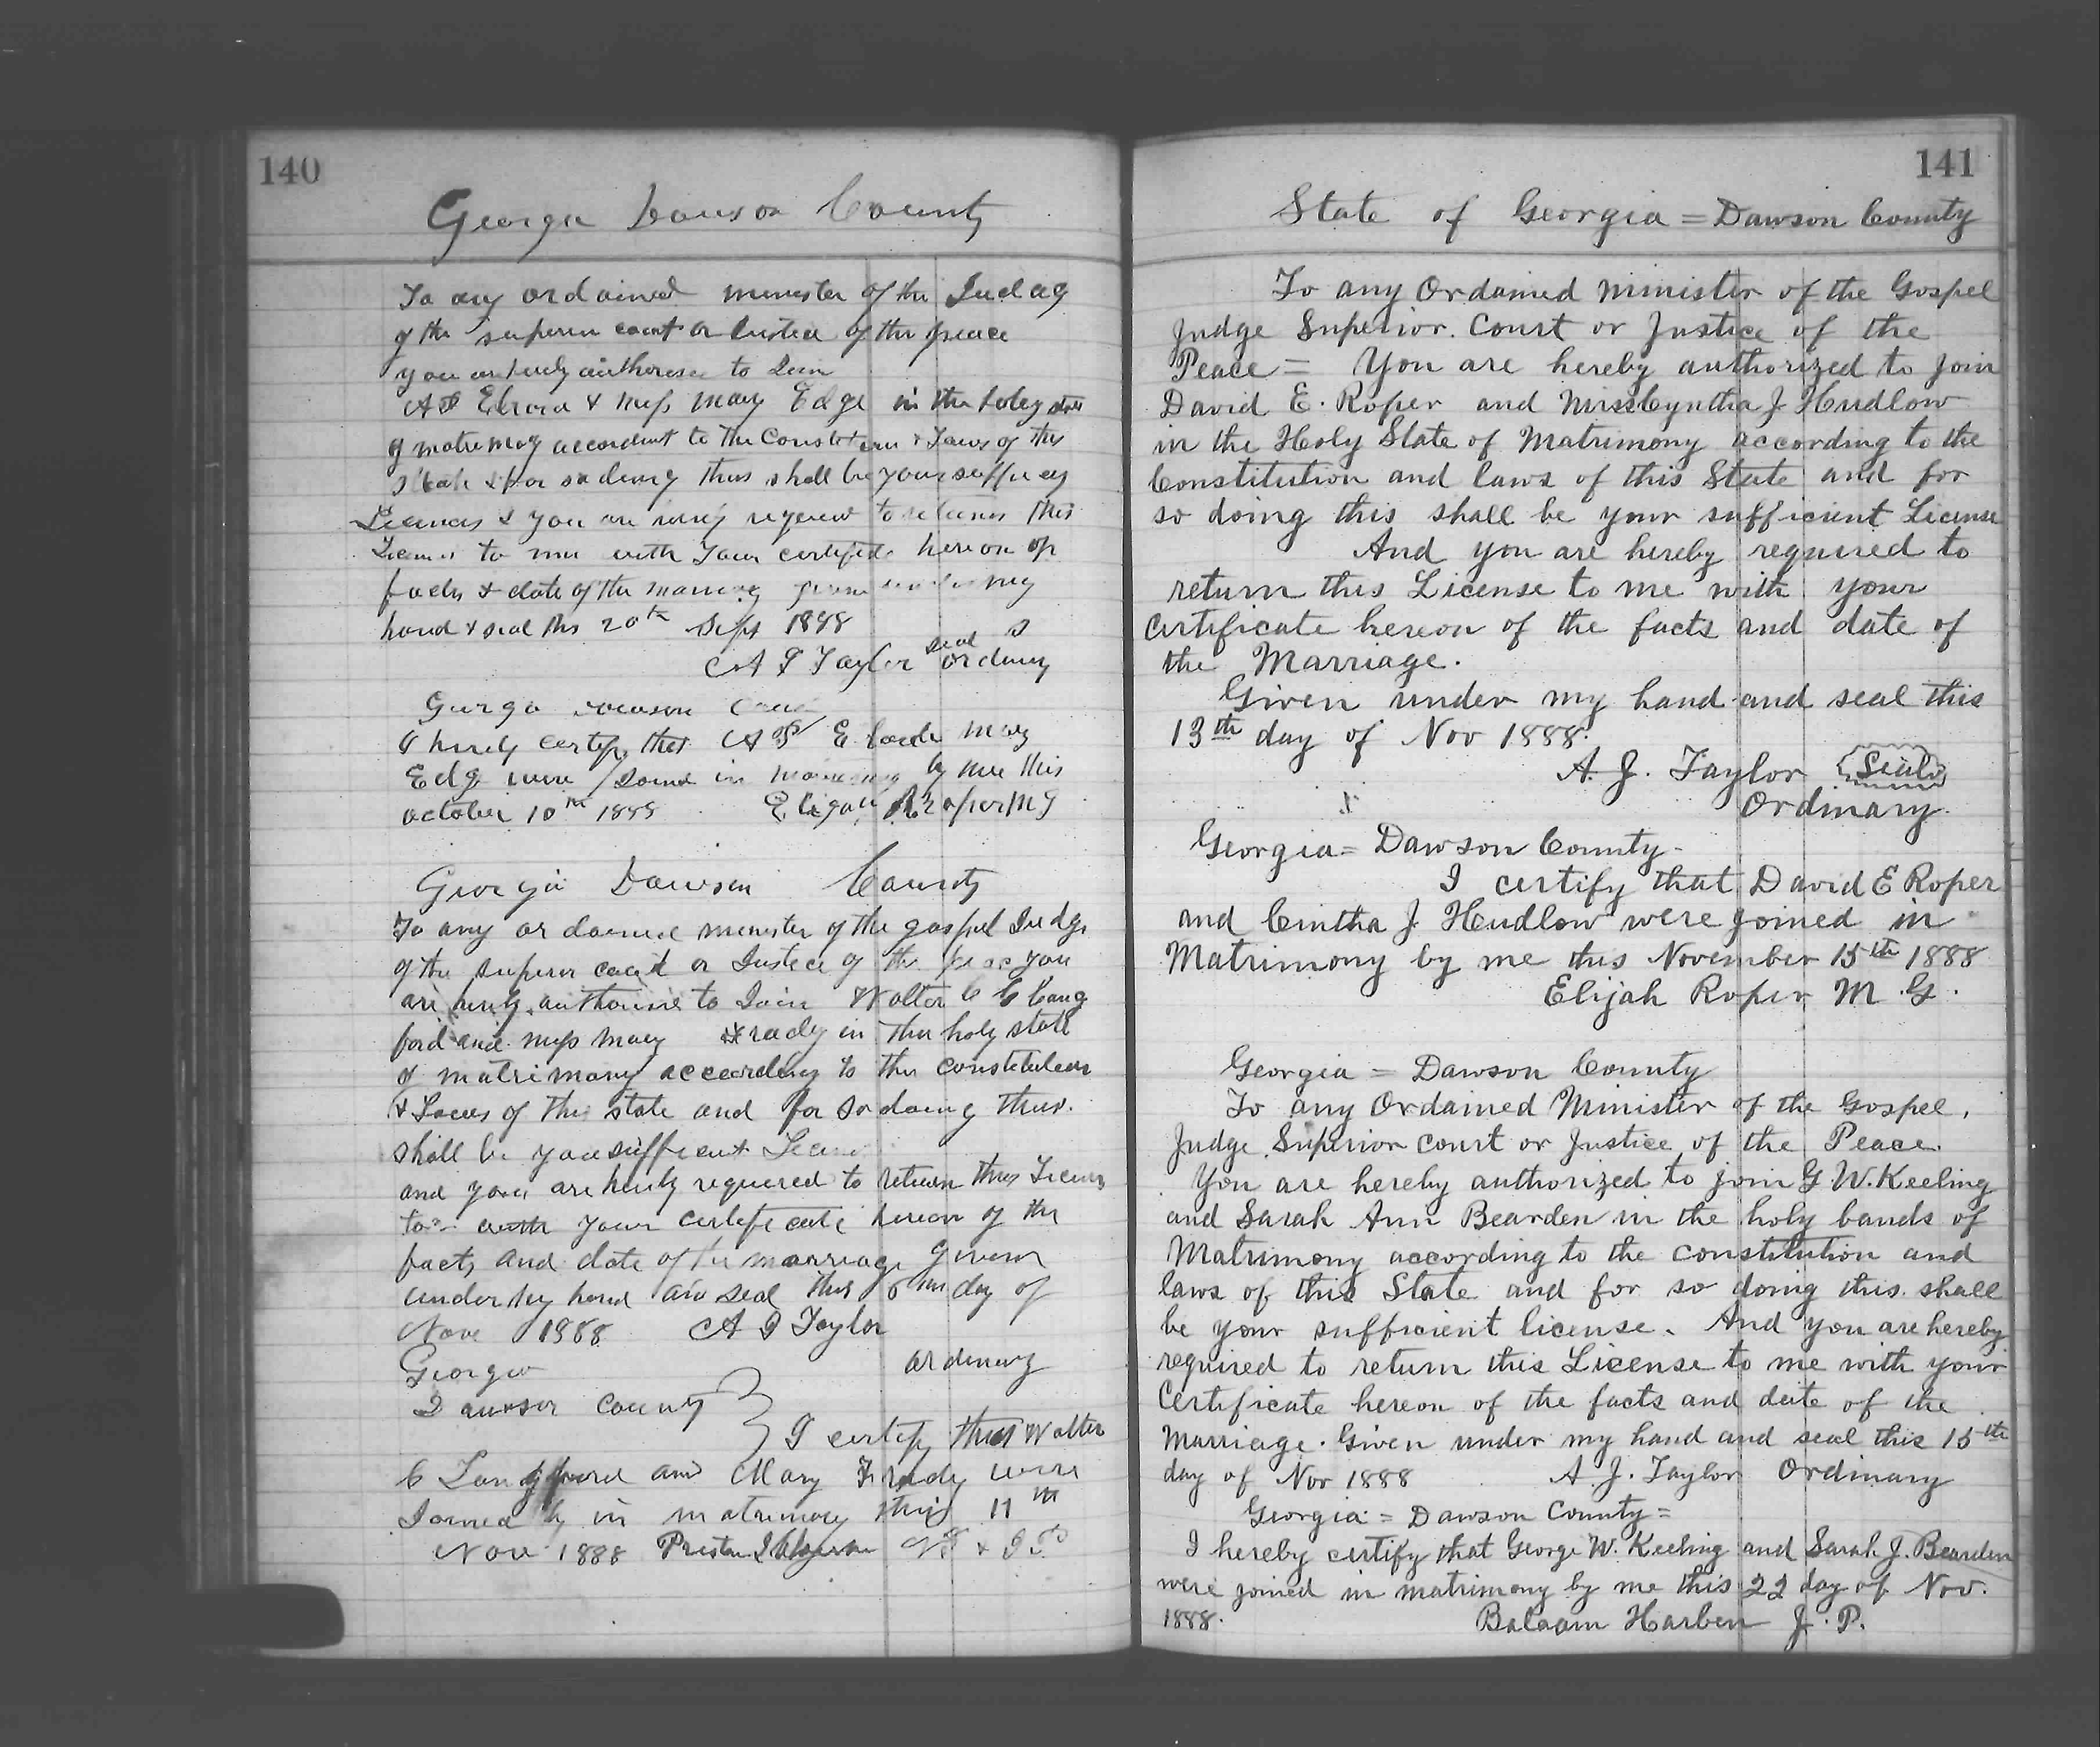 140
Georgia Dawson County
To any ordained minester of the Judag
of the superin court or Justica of the peace
you are herely autherese to Join
A J & Miss Mary Edge in the holey state
of matrimoy accordent to the Constution & Laws of this
state & for so doing this shall be your suffucy
Licences & you are herby requred to returns this
Licens to me with your certifcate hereon of
facts & date of the marriag given under my
hand & seal this 20th Sept 1888
A J Taylor seal ordinary
Georga Dawson
I herely certify that A J Mary
Edg were Joined in matrimony by me this
october 10th 1888 Eligah Roper M G
Georgia Dawson County
To any ordained minester of the gospel Judge
of the superior court or Justice of the peace you
are herby authorise to Join Walter C Lang
ford and miss Mary Frady in the holy state
of matrimony according to the constitution
& Laws of this state and for so doing this
shall be your sufficent Licens
and you are herby requered to return this Licens
to with your certificate hereon of the
facts and date of the marriage given
under my hand and seal this 6th day of
Nove 1888 A J Taylor
Georgia ordinary
Dawson County
I certify that Walter
C Langford and Mary Frady were
Joined by in matrimony this 11th
Nov 1888 Preston
141
State of Georgia = Dawson County
To any Ordained Minister of the Gospel
Judge Superior Court or Justice of the
Peace = You are hereby authorized to join
David E. Roper and Miss Cyntha J. Hudlow
in the Holy State of Matrimony according to the
Constitution and laws of this State and for
so doing this shall be your sufficient License
And you are hereby required to
return this License to me with your
Certificate hereon of the facts and date of
the Marriage.
Given under my hand and seal this
13th day of Nov 1888.
A. J. Taylor Seal
Ordinary.
Georgia = Dawson County-
I certify that David E Roper
and Cintha J. Hudlow were joined in
Matrimony by me this November 15th 1888
Elijah Roper M. G.
Georgia = Dawson County
To any Ordained Minister of the Gospel,
Judge Superior Court or Justice of the Peace.
You are hereby authorized to join G. W. Keeling
and Sarah Ann Bearden in the holy bands of
Matrimony according to the constitution and
laws of this State and for so doing this shall
be your sufficient license. And you are hereby
required to return this License to me with your
Certificate hereon of the facts and date of the
Marriage. Given under my hand and seal this 15th
day of Nov 1888 A. J. Taylor Ordinary
Georgia = Dawson County =
I hereby certify that George W. Keeling and Sarah J. Bearden
were joined in matrimony by me this 22 day of Nov.
1888. Balaam Harben J. P.